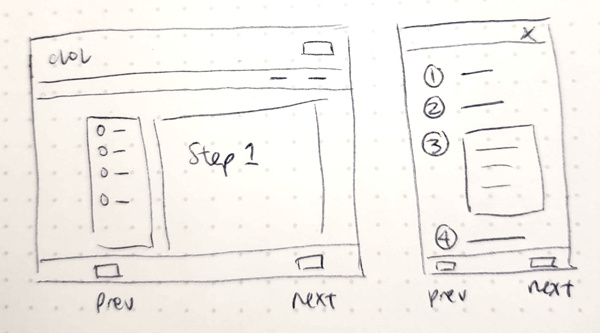 Step 1
prev
next
X
1
2
3
4
prev
next